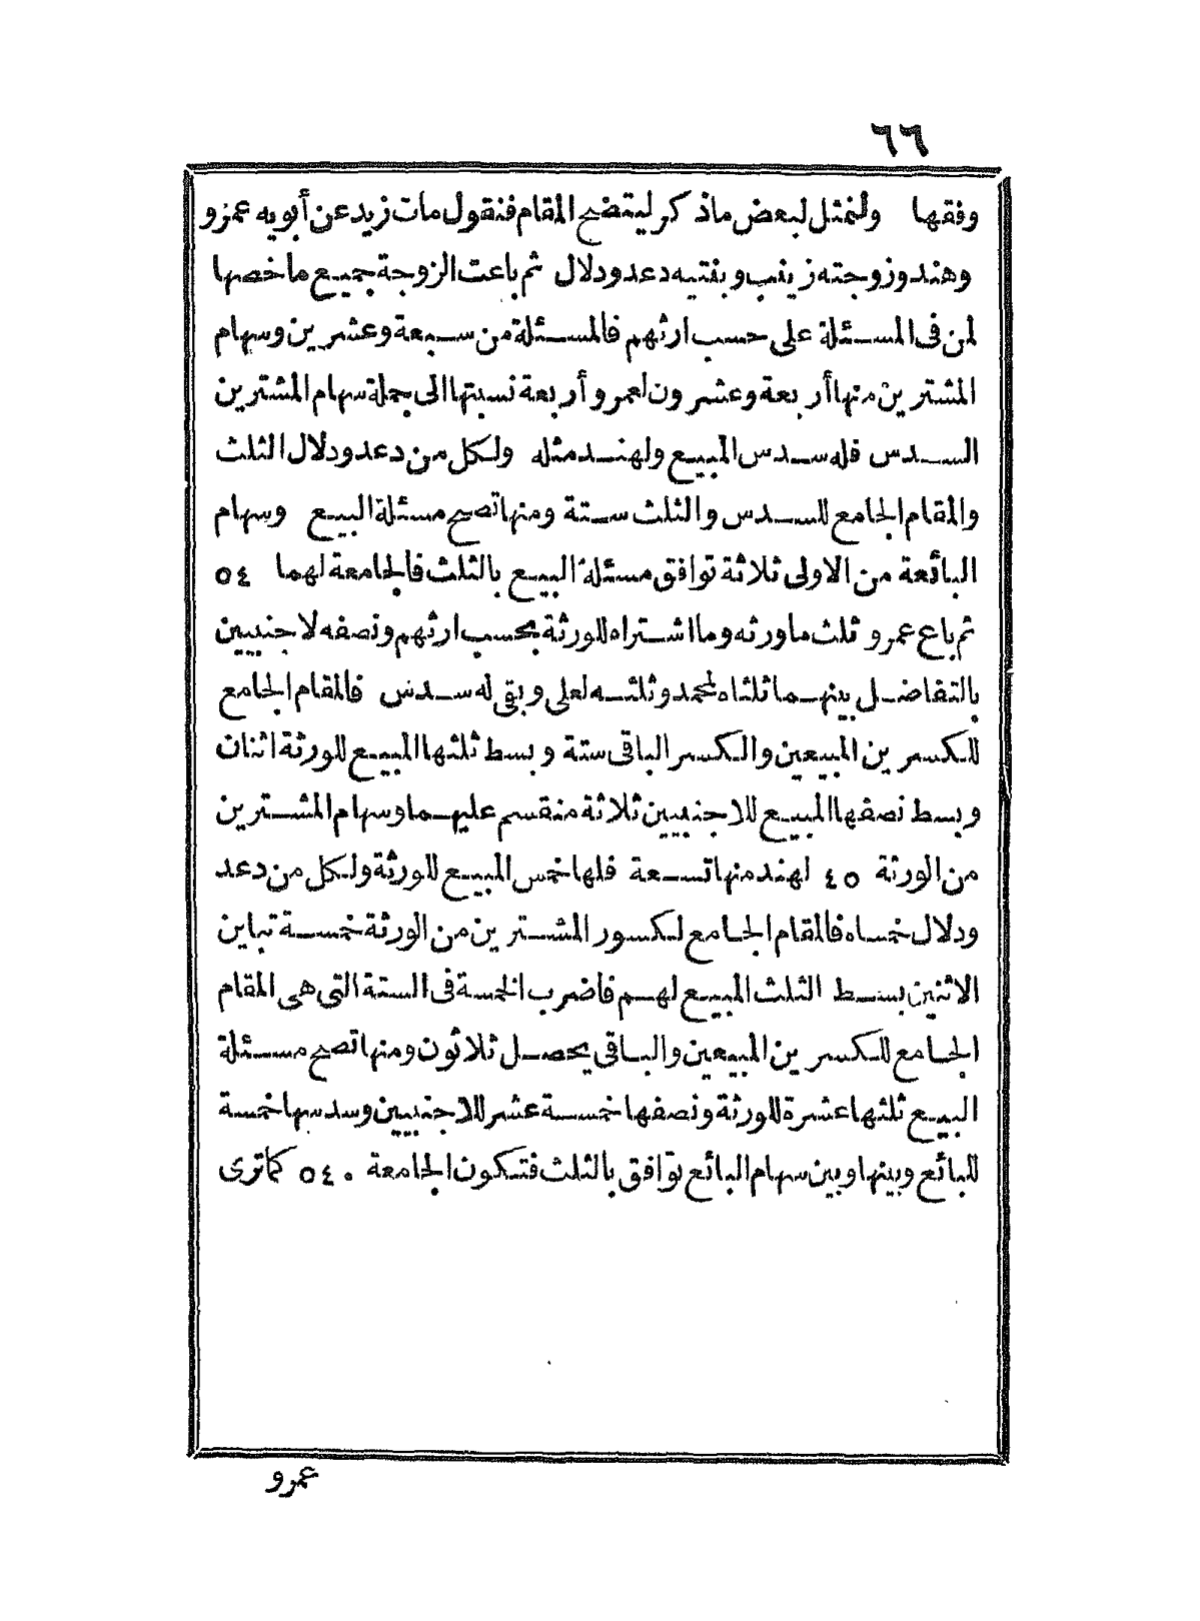 ٦٦
وفقها ولنمثل لبعض ماذكر ليتضح المقام فنقول مات زيد عن أبويه عمرو
وهند وزوجته زينب وبنتيه دعد ودلال ثم باعت الزوجة جميع ما خصها
لمن فى المسئلة على حسب ارثهم فالمسئلة من سبعة وعشرين وسهام
المشترين منها أربعة وعشرون لعمرو أربعة نسبتها الى جملة سهام المشترين
السدس فله سدس المبيع ولهند مثله ولكل من دعد ودلال الثلث
والمقام الجامع للسدس والثلث ستة ومنها تصح مسئلة البيع وسهام
البائعة من الاولى ثلاثة توافق مسئلة البيع بالثلث فالجامعة لهما ٥٤
ثم باع عمرو ثلث ماورثه وما اشتراه للورثة بحسب ارثهم ونصفه لاجنبيين
بالتفاضل بينهما ثلثاه لمحمد وثلثه لعلى وبقى له سدس فالمقام الجامع
للكسرين المبيعين والكسر الباقى ستة وبسط ثلثها المبيع للورثة اثنان
وبسط نصفها المبيع للاجنبيين ثلاثة منقسم عليهما وسهام المشترين
من الورثة ٤٥ لهند منها تسعة فلها خمس المبيع للورثة ولكل من دعد
ودلال خمساه فالمقام الجامع لكسور المشترين من الورثة خمسة تباين
الاثنين بسط الثلث المبيع لهم فاضرب الخمسة فى الستة التى هى المقام
الجامع للكسرين المبيعين والباقى يحصل ثلاثون ومنها تصح مسئلة
البيع ثلثها عشرة للورثة ونصفها خمسة عشر للاجنبيين وسدسها خمسة
للبائع وبينها وبين سهام البائع توافق بالثلث فتكون الجامعة ٥٤٠ كماترى
عمرو